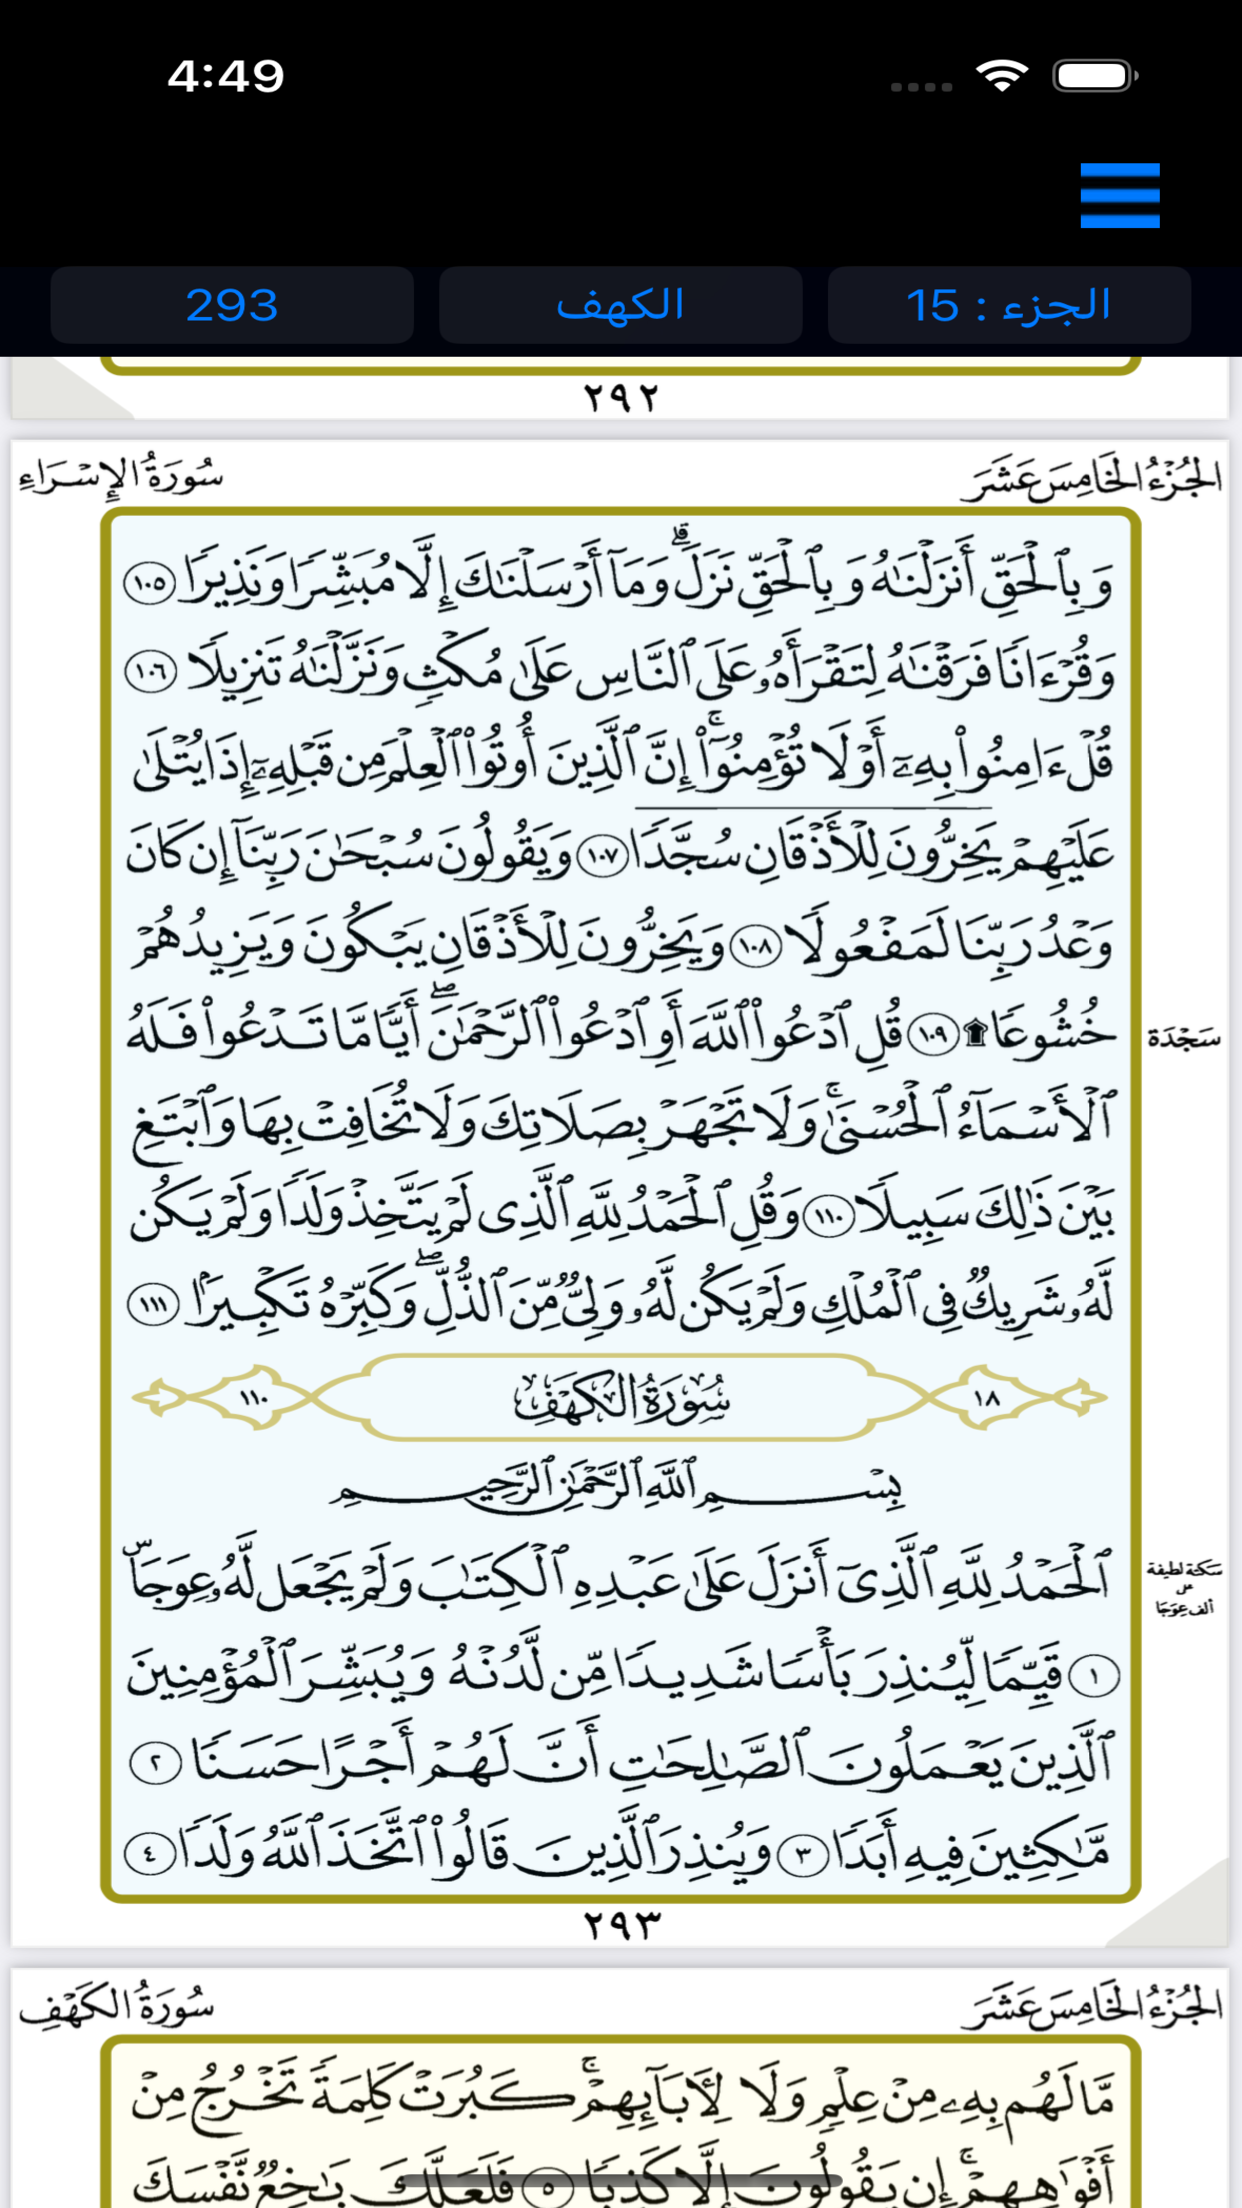 4:49
الجزء : 15
الكهف
293
٢٩٢
الجُزْءُ الخَامِسَ عَشَرَ
سُورَةُ الإِسْرَاءِ
وَبِٱلْحَقِّ أَنزَلْنَٰهُ وَبِٱلْحَقِّ نَزَلَۗ وَمَآ أَرْسَلْنَٰكَ إِلَّا مُبَشِّرًا وَنَذِيرًا ١٠٥
وَقُرْءَانًا فَرَقْنَٰهُ لِتَقْرَأَهُۥ عَلَى ٱلنَّاسِ عَلَىٰ مُكْثٍ وَنَزَّلْنَٰهُ تَنزِيلًا ١٠٦
قُلْ ءَامِنُوا۟ بِهِۦٓ أَوْ لَا تُؤْمِنُوٓا۟ۚ إِنَّ ٱلَّذِينَ أُوتُوا۟ ٱلْعِلْمَ مِن قَبْلِهِۦٓ إِذَا يُتْلَىٰ
عَلَيْهِمْ يَخِرُّونَ لِلْأَذْقَانِ سُجَّدًا ١٠٧ وَيَقُولُونَ سُبْحَٰنَ رَبِّنَآ إِن كَانَ
وَعْدُ رَبِّنَا لَمَفْعُولًا ١٠٨ وَيَخِرُّونَ لِلْأَذْقَانِ يَبْكُونَ وَيَزِيدُهُمْ
خُشُوعًا ۩ ١٠٩ قُلِ ٱدْعُوا۟ ٱللَّهَ أَوِ ٱدْعُوا۟ ٱلرَّحْمَٰنَۖ أَيًّا مَّا تَدْعُوا۟ فَلَهُ
سَجْدَة
ٱلْأَسْمَآءُ ٱلْحُسْنَىٰۚ وَلَا تَجْهَرْ بِصَلَاتِكَ وَلَا تُخَافِتْ بِهَا وَٱبْتَغِ
بَيْنَ ذَٰلِكَ سَبِيلًا ١١٠ وَقُلِ ٱلْحَمْدُ لِلَّهِ ٱلَّذِى لَمْ يَتَّخِذْ وَلَدًا وَلَمْ يَكُن
لَّهُۥ شَرِيكٌ فِى ٱلْمُلْكِ وَلَمْ يَكُن لَّهُۥ وَلِىٌّ مِّنَ ٱلذُّلِّۖ وَكَبِّرْهُ تَكْبِيرًۢا ١١١
١٨ سُورَةُ الكَهْفِ ١١٠
بِسْمِ ٱللَّهِ ٱلرَّحْمَٰنِ ٱلرَّحِيمِ
ٱلْحَمْدُ لِلَّهِ ٱلَّذِىٓ أَنزَلَ عَلَىٰ عَبْدِهِ ٱلْكِتَٰبَ وَلَمْ يَجْعَل لَّهُۥ عِوَجَاۜ
سكتة لطيفة
على
ألف عِوَجَا
١ قَيِّمًا لِّيُنذِرَ بَأْسًا شَدِيدًا مِّن لَّدُنْهُ وَيُبَشِّرَ ٱلْمُؤْمِنِينَ
ٱلَّذِينَ يَعْمَلُونَ ٱلصَّٰلِحَٰتِ أَنَّ لَهُمْ أَجْرًا حَسَنًا ٢
مَّٰكِثِينَ فِيهِ أَبَدًا ٣ وَيُنذِرَ ٱلَّذِينَ قَالُوا۟ ٱتَّخَذَ ٱللَّهُ وَلَدًا ٤
٢٩٣
الجُزْءُ الخَامِسَ عَشَرَ
سُورَةُ الكَهْفِ
مَّا لَهُم بِهِۦ مِنْ عِلْمٍ وَلَا لِـَٔابَآئِهِمْۚ كَبُرَتْ كَلِمَةً تَخْرُجُ مِنْ
أَفْوَٰهِهِمْۚ إِن يَقُولُونَ إِلَّا كَذِبًا ٥ فَلَعَلَّكَ بَٰخِعٌ نَّفْسَكَ